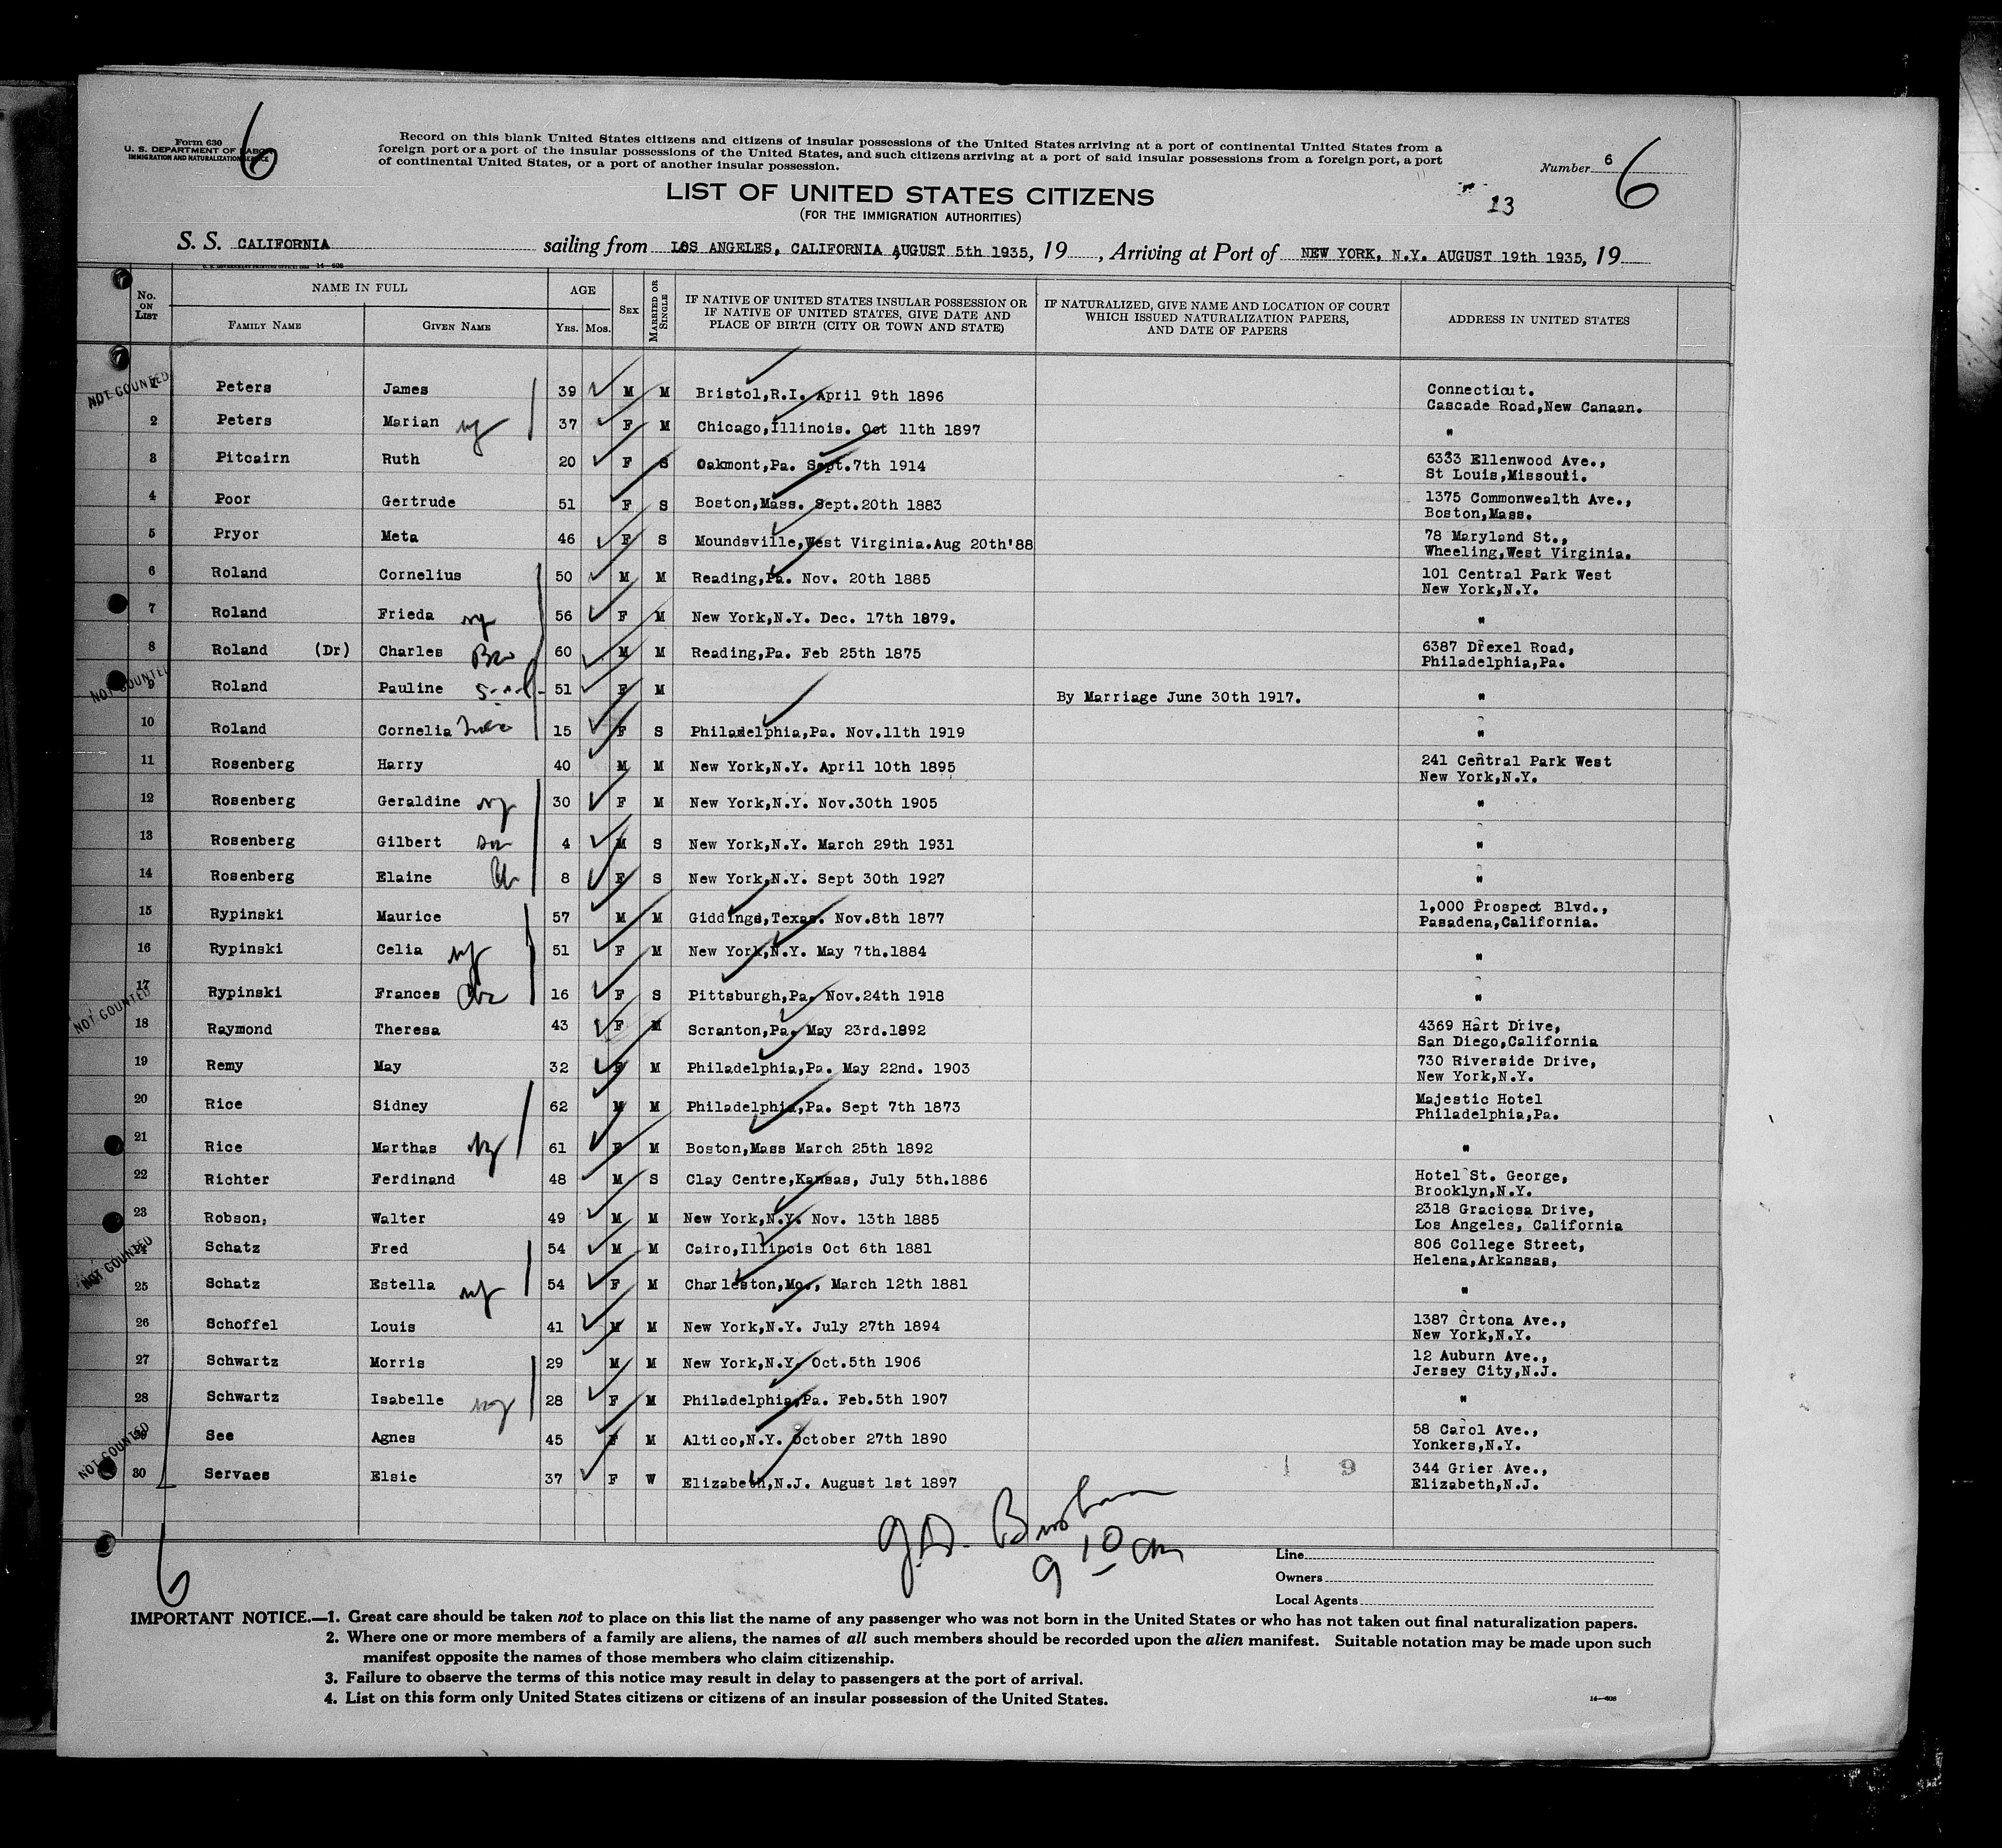 Form 630
U. S. DEPARTMENT OF LABOR
IMMIGRATION AND NATURALIZATION SERVICE
6
Record on this blank United States citizens and citizens of insular possessions of the United States arriving at a port of continental United States from a
foreign port or a port of the insular possessions of the United States, and such citizens arriving at a port of said insular possessions from a foreign port, a port
of continental United States, or a port of another insular possession.
Number 6
6
LIST OF UNITED STATES CITIZENS
(FOR THE IMMIGRATION AUTHORITIES)
13
S. S. CALIFORNIA sailing from LOS ANGELES, CALIFORNIA AUGUST 5th 1935, 19 , Arriving at Port of NEW YORK, N.Y. AUGUST 19th 1935, 19
No. ON LIST
NAME IN FULL
FAMILY NAME GIVEN NAME
AGE
YRS. MOS.
SEX
MARRIED OR SINGLE
IF NATIVE OF UNITED STATES INSULAR POSSESSION OR
IF NATIVE OF UNITED STATES, GIVE DATE AND
PLACE OF BIRTH (CITY OR TOWN AND STATE)
IF NATURALIZED, GIVE NAME AND LOCATION OF COURT
WHICH ISSUED NATURALIZATION PAPERS,
AND DATE OF PAPERS
ADDRESS IN UNITED STATES
NOT COUNTED
1 Peters James 39 M M Bristol,R.I. April 9th 1896 Connecticut.
Cascade Road,New Canaan.
2 Peters Marian 37 F M Chicago,Illinois. Oct 11th 1897 "
3 Pitcairn Ruth 20 F S Oakmont,Pa. Sept.7th 1914 6333 Ellenwood Ave.,
St Louis,Missouri.
4 Poor Gertrude 51 F S Boston,Mass. Sept.20th 1883 1375 Commonwealth Ave.,
Boston,Mass.
5 Pryor Meta 46 F S Moundsville,West Virginia.Aug 20th'88 78 Maryland St.,
Wheeling,West Virginia.
6 Roland Cornelius 50 M M Reading,Pa. Nov. 20th 1885 101 Central Park West
New York,N.Y.
7 Roland Frieda 56 F M New York,N.Y. Dec. 17th 1879. "
8 Roland (Dr) Charles Bro 60 M M Reading,Pa. Feb 25th 1875 6387 Drexel Road,
Philadelphia,Pa.
NOT COUNTED
9 Roland Pauline 51 F M By Marriage June 30th 1917. "
10 Roland Cornelia 15 F S Philadelphia,Pa. Nov.11th 1919 "
11 Rosenberg Harry 40 M M New York,N.Y. April 10th 1895 241 Central Park West
New York,N.Y.
12 Rosenberg Geraldine 30 F M New York,N.Y. Nov.30th 1905 "
13 Rosenberg Gilbert son 4 M S New York,N.Y. March 29th 1931 "
14 Rosenberg Elaine 8 F S New York,N.Y. Sept 30th 1927 "
15 Rypinski Maurice 57 M M Giddings,Texas. Nov.8th 1877 1,000 Prospect Blvd.,
Pasadena,California.
16 Rypinski Celia 51 F M New York,N.Y. May 7th.1884 "
17 Rypinski Frances 16 F S Pittsburgh,Pa. Nov.24th 1918 "
NOT COUNTED
18 Raymond Theresa 43 F M Scranton,Pa. May 23rd.1892 4369 Hart Drive,
San Diego,California
19 Remy May 32 F M Philadelphia,Pa. May 22nd. 1903 730 Riverside Drive,
New York,N.Y.
20 Rice Sidney 62 M M Philadelphia,Pa. Sept 7th 1873 Majestic Hotel
Philadelphia,Pa.
21 Rice Marthas 61 F M Boston,Mass March 25th 1892 "
22 Richter Ferdinand 48 M S Clay Centre,Kansas, July 5th.1886 Hotel St. George,
Brooklyn,N.Y.
23 Robson, Walter 49 M M New York,N.Y. Nov. 13th 1885 2318 Graciosa Drive,
Los Angeles, California
NOT COUNTED
24 Schatz Fred 54 M M Cairo,Illinois Oct 6th 1881 806 College Street,
Helena,Arkansas,
25 Schatz Estella 54 F M Charleston,Mo., March 12th 1881 "
26 Schoffel Louis 41 M M New York,N.Y. July 27th 1894 1387 Crtona Ave.,
New York,N.Y.
27 Schwartz Morris 29 M M New York,N.Y. Oct.5th 1906 12 Auburn Ave.,
Jersey City,N.J.
28 Schwartz Isabelle 28 F M Philadelphia,Pa. Feb.5th 1907 "
29 See Agnes 45 F M Altico,N.Y. October 27th 1890 58 Carol Ave.,
Yonkers,N.Y.
NOT COUNTED
30 Servaes Elsie 37 F W Elizabeth,N.J. August 1st 1897 1 9 344 Grier Ave.,
Elizabeth,N.J.
9 10 am
6
Line
Owners
Local Agents
IMPORTANT NOTICE.—1. Great care should be taken not to place on this list the name of any passenger who was not born in the United States or who has not taken out final naturalization papers.
2. Where one or more members of a family are aliens, the names of all such members should be recorded upon the alien manifest. Suitable notation may be made upon such
manifest opposite the names of those members who claim citizenship.
3. Failure to observe the terms of this notice may result in delay to passengers at the port of arrival.
4. List on this form only United States citizens or citizens of an insular possession of the United States.
14—608